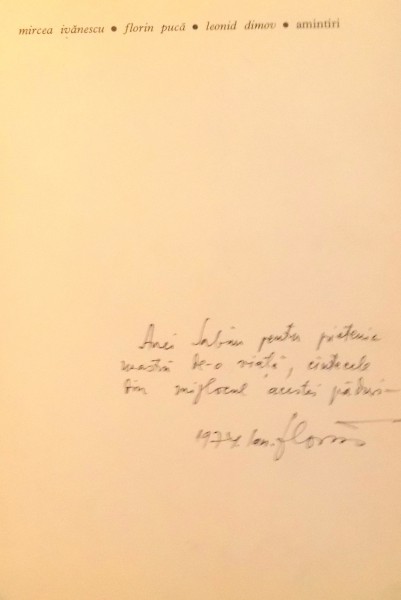 mircea ivănescu • florin pucă • leonid dimov • amintiri
Anei Sabău pentru prietenia
noastră de-o viață, cîntecele
din mijlocul acestei păduri
1974 Ian. florin